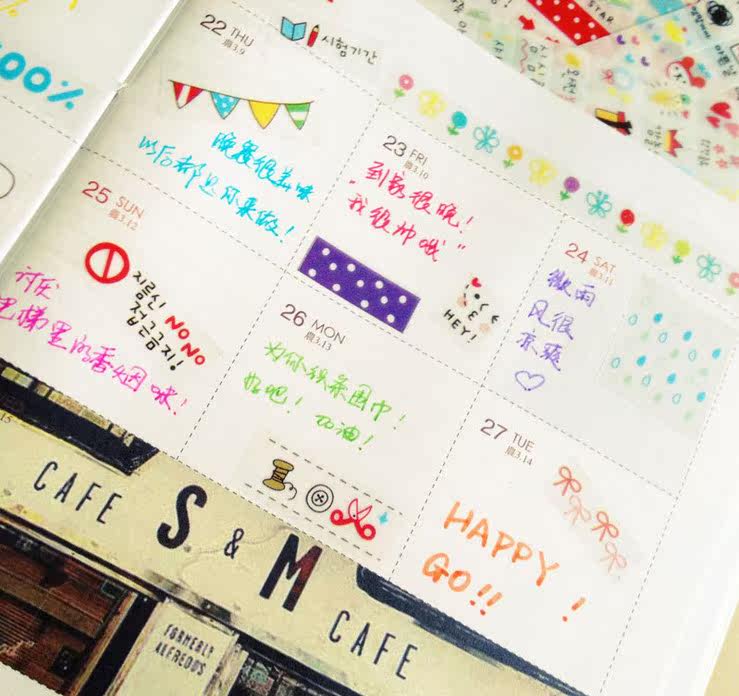 00%
22 THU
農3.9
시험기간
STAR
晚餐很美味
以后都是你来做！
23 FRI
農3.10
到家很晚！
"我很帅哦"
24 SAT
農3.11
微雨
风很
凉爽
25 SUN
農3.12
지름신 NO NO
접근금지!
讨厌
电梯里的香烟味！
HEY!
26 MON
農3.13
为你织条围巾！
好吧！加油！
27 TUE
農3.14
HAPPY !
GO!!
15
CAFE S & M CAFE
FORMERLY
ALFREDOS